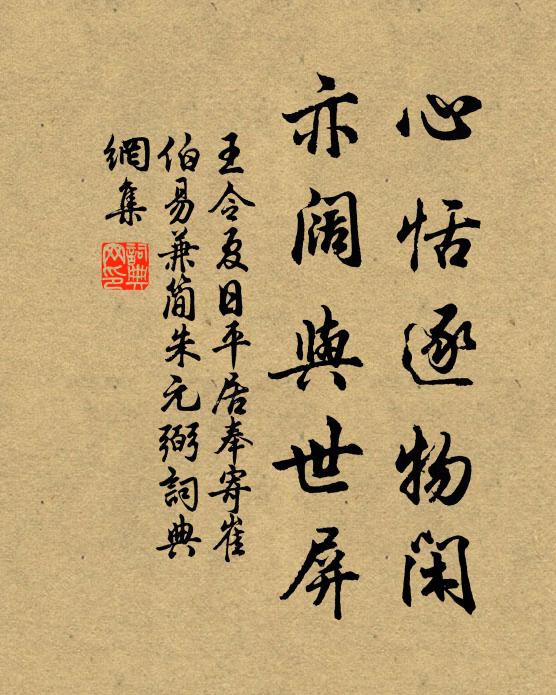 心恬逐物閑
亦阔與世屏
王令夏日平居奉寄崔
伯易兼简朱元弼詞典
網集
詞典
网印